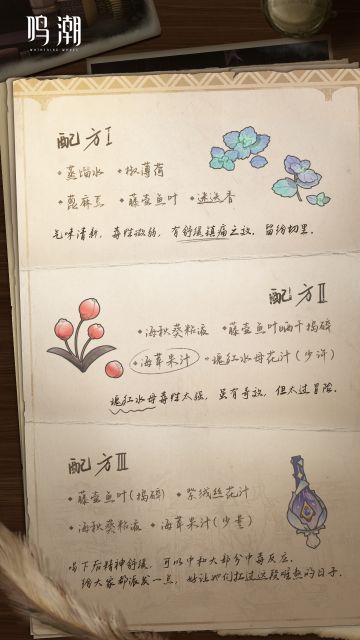 鸣潮
WUTHERING WAVES
配方I
•蒸馏水 •椒薄荷
•蓖麻 •藤壶鱼叶 •迷迭香
气味清新，毒性微弱，有舒缓镇痛之效，留给切里。
配方II
•海秋葵粘液 •藤壶鱼叶晒干捣碎
•海莓果汁 •瑰红水母花汁(少许)
瑰红水母毒性太强，虽有奇效，但太过冒险。
配方III
•藤壶鱼叶(捣碎) •紫绒丝花汁
•海秋葵粘液 •海莓果汁(少量)
喝下后精神舒缓，可以中和大部分中毒反应。
给大家都派发一点，好让她们扛过这段难熬的日子。